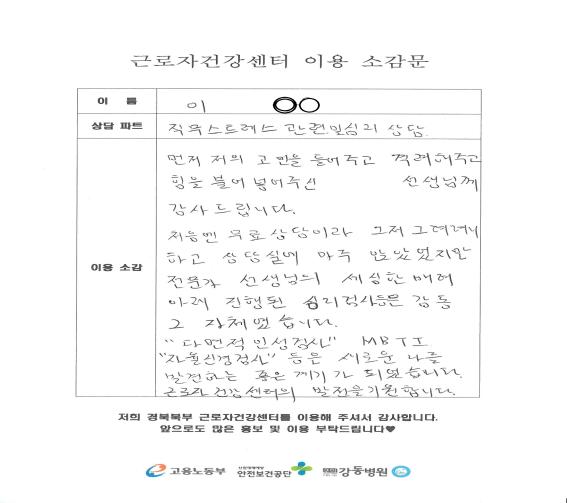 근로자건강센터 이용 소감문
이 름
이 ○○
상담 파트
직무스트레스 관련및심리 상담.
이용 소감
먼저 저의 고민을 들어주고 격려해주고
힘을 불어 넣어주신 선생님께
감사드립니다.
처음엔 무료상담이라 그저 그려려니
하고 상담실에 마주 앉았었지만
전문가 선생님의 세심한 배려
아래 진행된 심리검사등은 감동
그 자체였습니다.
"다면적 인성검사" MBTI
"자율신경검사" 등은 새로운 나를
발견하는 좋은 계기가 되었습니다.
근로자 건강센터의 발전을 기원합니다.
저희 경북북부 근로자건강센터를 이용해 주셔서 감사합니다.
앞으로도 많은 홍보 및 이용 부탁드립니다♥
고용노동부
안전보건공단
강동병원